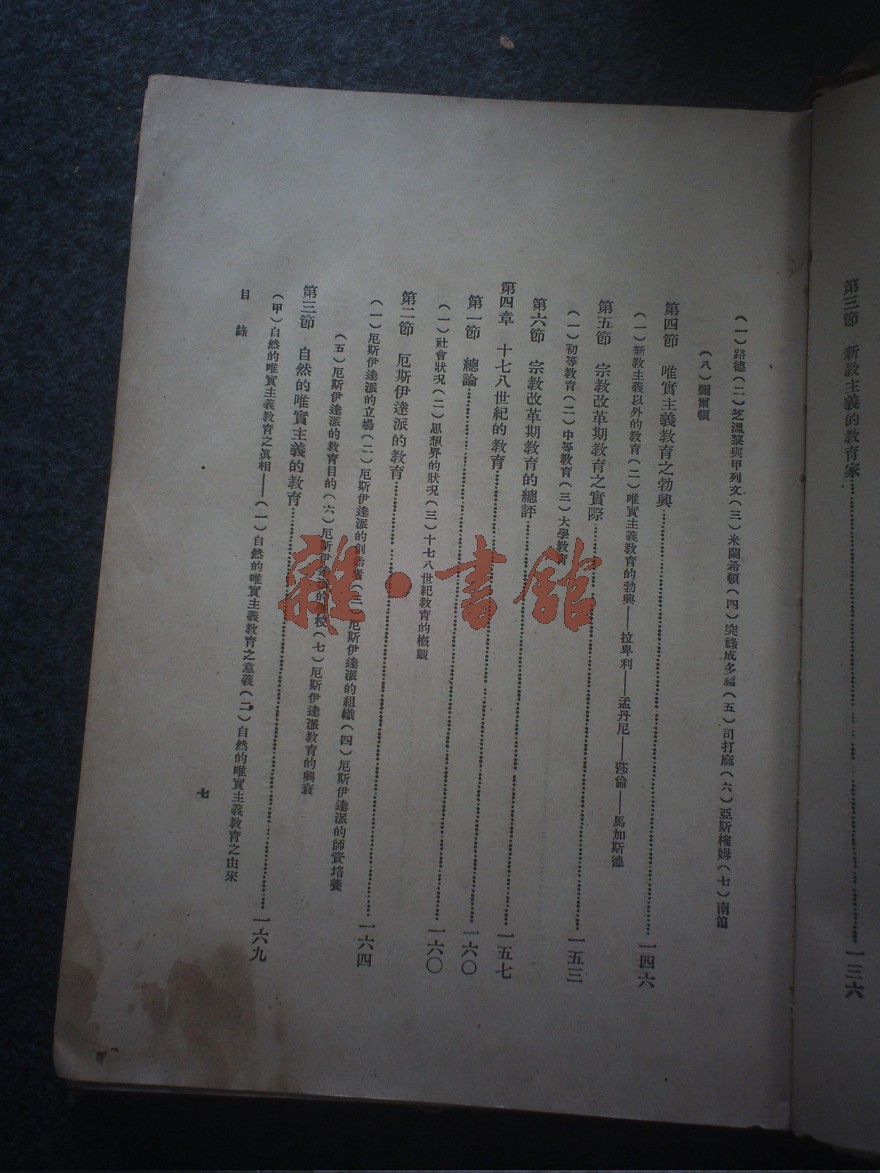 第三節　新教主義的教育家……一三六
（一）路德（二）芝溫黎與甲列文（三）米蘭希頓（四）突祿成多福（五）司打麻（六）亞斯權姆（七）南
（八）彌爾頓
第四節　唯實主義教育之勃興……一四六
（一）新教主義以外的教育（二）唯實主義教育的勃興——拉卑利——孟丹尼——莎倫——馬加斯德
第五節　宗教改革期教育之實際……一五三
（一）初等教育（二）中等教育（三）大學教育
第六節　宗教改革期教育的總評……一五七
第四章　十七八世紀的教育……一六〇
第一節　總論……一六〇
（一）社會狀況（二）思想界的狀況（三）十七八世紀教育的概觀
第二節　厄斯伊達派的教育……一六四
（一）厄斯伊達派的立場（二）厄斯伊達派的創始者（三）厄斯伊達派的組織（四）厄斯伊達派的師資培養
（五）厄斯伊達派的教育目的（六）厄斯伊達派的學校（七）厄斯伊達派教育的興衰
第三節　自然的唯實主義的教育……一六九
（甲）自然的唯實主義教育之眞相——（一）自然的唯實主義教育之意義（二）自然的唯實主義教育之由來
目錄
七
雜·書館